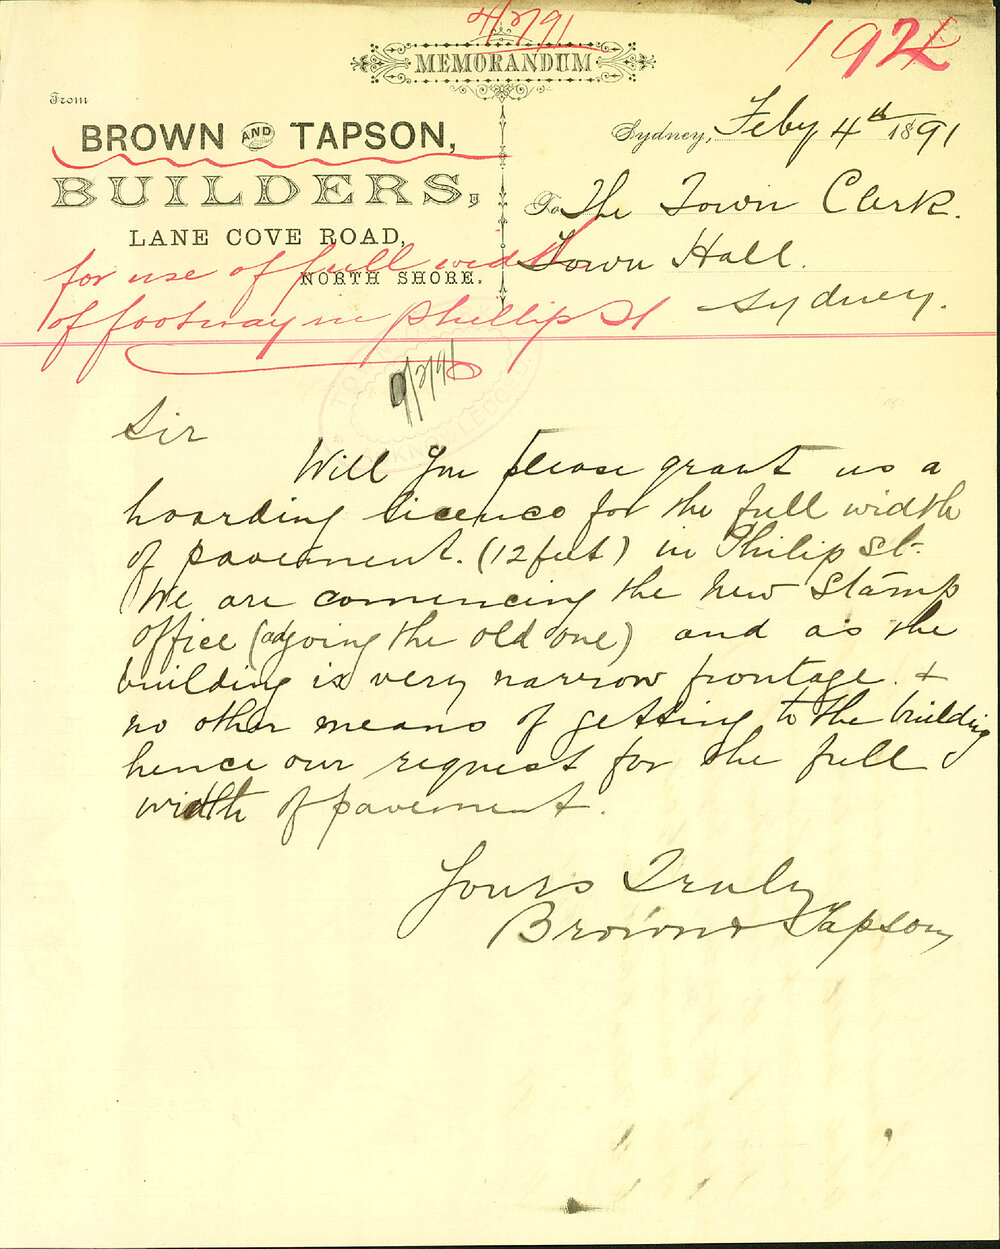 4/2/91
192
MEMORANDUM
From
BROWN AND TAPSON,
BUILDERS,
LANE COVE ROAD,
NORTH SHORE.
Sydney, Feby 4th 1891
To The Town Clerk.
Town Hall.
Sydney.
for use of full width
of footway in Phillip St
9/2/91
ACKNOWLEDGED
Sir
Will you please grant us a
hoarding licence for the full width
of pavement. (12 feet) in Philip St.
We are comencing the new Stamp
office (adjoing the old one) and as the
building is very narrow frontage. &
no other means of getting to the building
hence our request for the full
width of pavement.
Yours Truly
Brown & Tapson